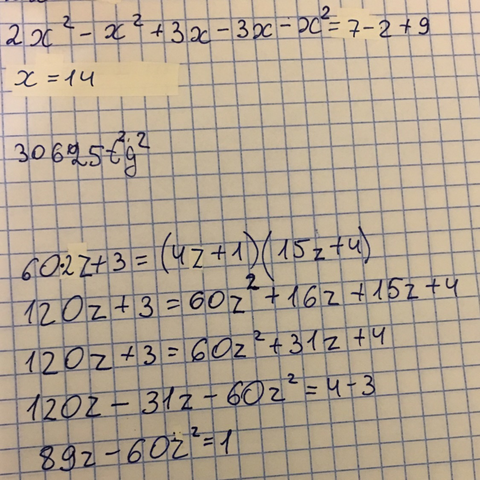 2x² - x² + 3x - 3x - x² = 7 - 2 + 9
x = 14
30625t²g²
60·2z + 3 = (4z + 1)(15z + 4)
120z + 3 = 60z² + 16z + 15z + 4
120z + 3 = 60z² + 31z + 4
120z - 31z - 60z² = 4 - 3
89z - 60z² = 1